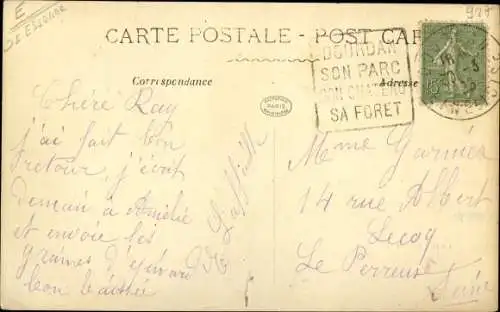 E
DE
928
CARTE POSTALE - POST CAR
Correspondance
Adresse
DOURDAN
SON PARC
SON CHATEAU
SA FORET
Chère Ray
j'ai fait bon
retour, j'écrit
demain à Amélie
et envoie les
graines d'
bon baiser
Mme Garnier
14 rue Albert
Lecoq
Le Perreux
Seine